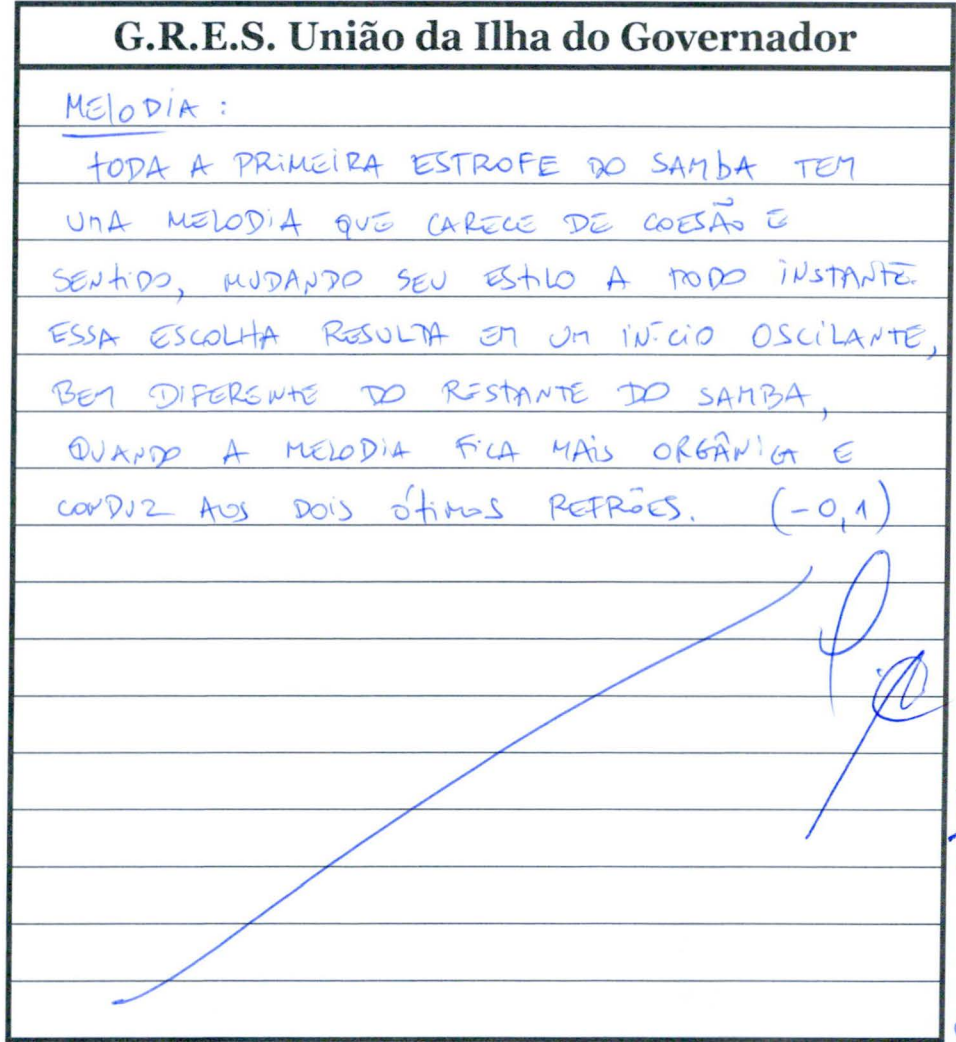 G.R.E.S. União da Ilha do Governador
MELODIA :
TODA A PRIMEIRA ESTROFE DO SAMBA TEM
UMA MELODIA QUE CARECE DE COESÃO E
SENTIDO, MUDANDO SEU ESTILO A TODO INSTANTE.
ESSA ESCOLHA RESULTA EM UM INÍCIO OSCILANTE,
BEM DIFERENTE DO RESTANTE DO SAMBA,
QUANDO A MELODIA FICA MAIS ORGÂNICA E
CONDUZ AOS DOIS ÓTIMOS REFRÕES. (-0,1)